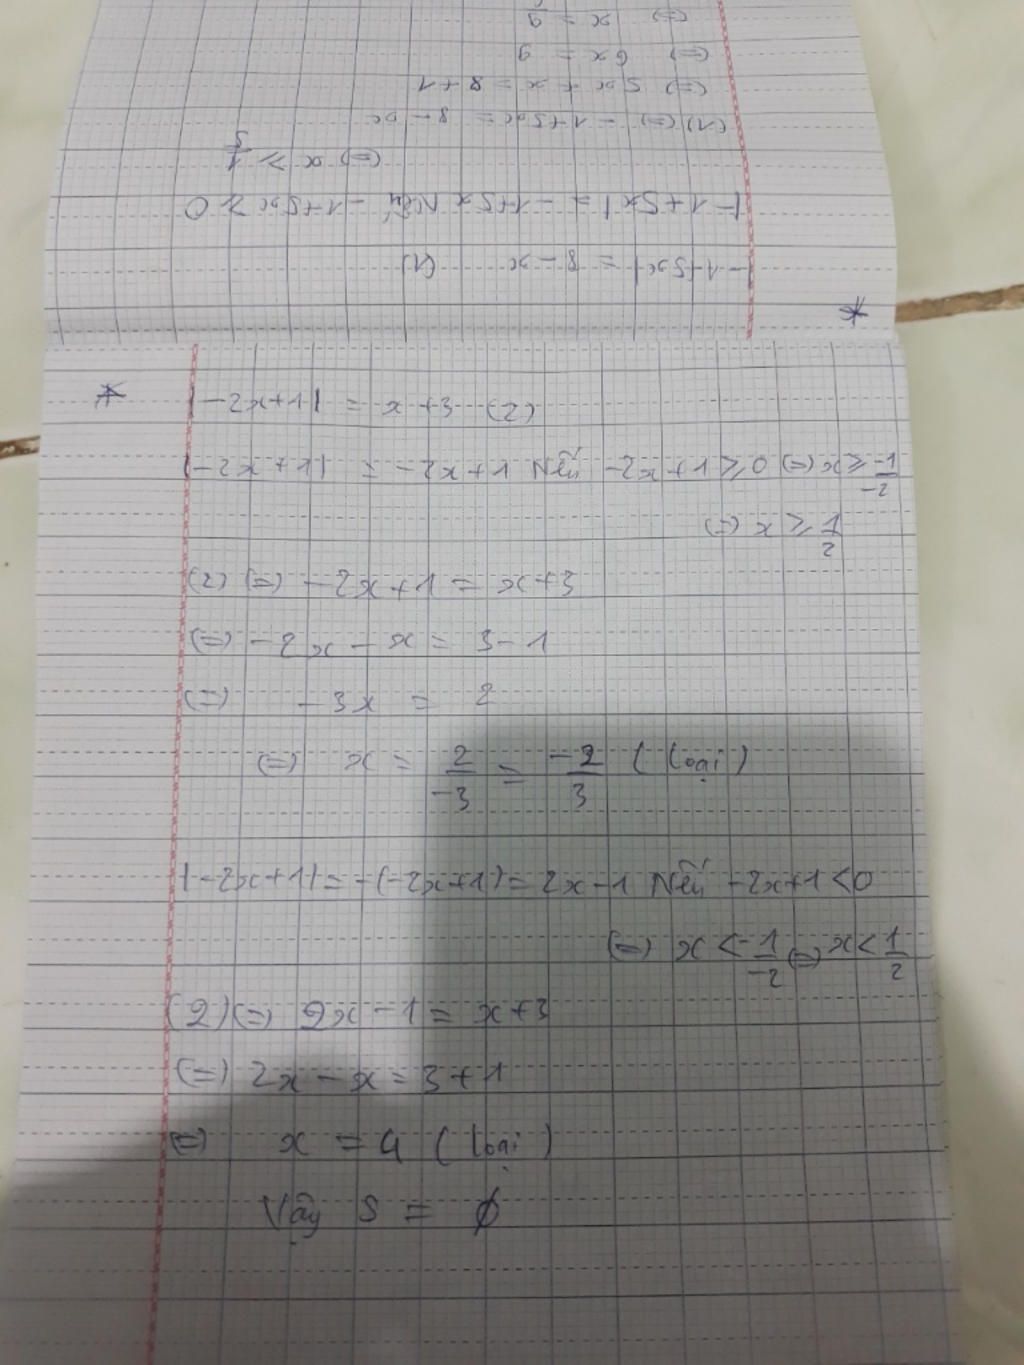 *
|-1+5x| = 8-x (1)
|-1+5x| = -1+5x Nếu -1+5x ≥ 0
(=) x ≥ 1/5
(1) (=) -1+5x = 8-x
(=) 5x + x = 8+1
(=) 6x = 9
(=) x = 9
*
|-2x+1| = x+3 (2)
|-2x+1| = -2x+1 Nếu -2x+1 ≥ 0 (=) x ≥ -1/-2
(=) x ≥ 1/2
(2) (=) -2x+1 = x+3
(=) -2x - x = 3-1
(=) -3x = 2
(=) x = 2/-3 = -2/3 (loại)
|-2x+1| = -(-2x+1) = 2x-1 Nếu -2x+1 < 0
(=) x < -1/-2 (=) x < 1/2
(2) (=) 2x-1 = x+3
(=) 2x-x = 3+1
(=) x = 4 (loại)
Vậy S = ∅